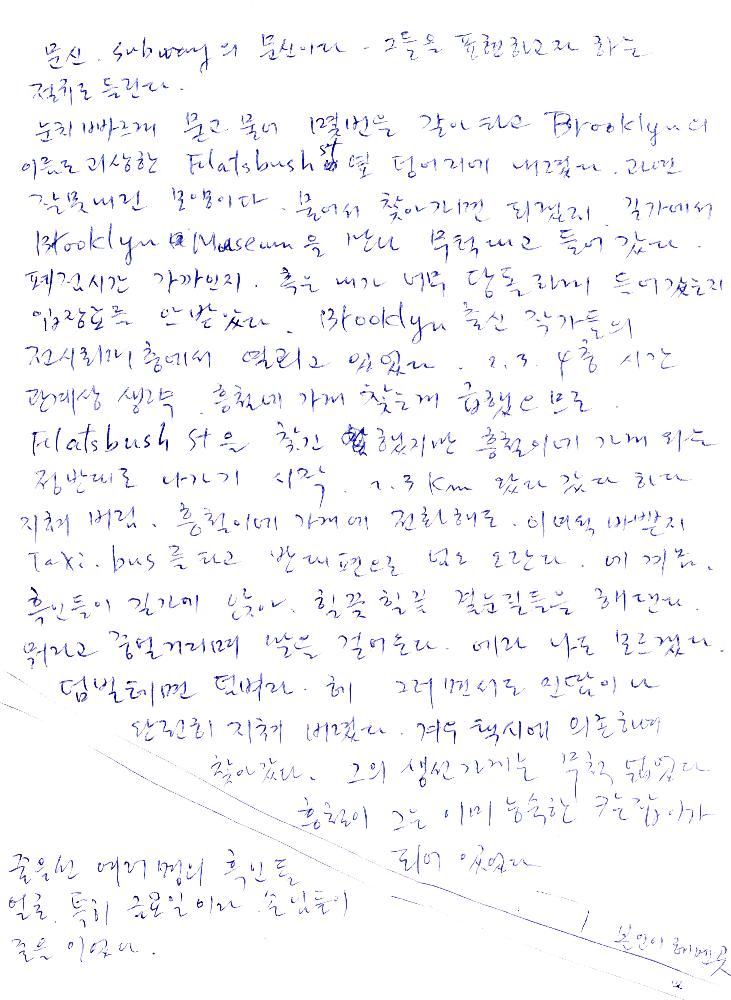 문신. subway의 문신이다 - 그들을 표현하고자 하는
절취로 들린다.
눈치 빠르게 묻고 물어 몇번을 갈아타고 Brooklyn의
이름도 괴상한 Flatsbush st 옆 덩어리에 내렸다. 그러면
잘못내린 모양이다. 물어서 찾아가면 되겠지. 길가에서
Brooklyn Museum을 만나 무턱대고 들어 갔다.
폐점시간 가까인지. 혹은 내가 너무 당돌하게 들어갔는지
입장료를 안받았다. Brooklyn 출신 작가들의
전시회가 1층에서 열리고 있었다. 2, 3, 4층 시간
관계상 생략. 흥철네 가게 찾는게 급했으므로.
Flatsbush st을 찾긴 했지만 흥철이네 가게 와는
정반대로 나가기 시작. 2.3 km 왔다 갔다 하다
지쳐 버림. 흥철이네 가게에 전화해도. 이녀석 바쁜지
Taxi. bus를 타고 반대편으로 넘어 오란다. 에 계속.
흑인들이 길가에 앉아. 힐끗 힐끗 곁눈질들을 해댄다.
뭐라고 중얼거리며 말을 걸어온다. 에라 나도 모르겠다.
덤빌테면 덤벼라. 헤 그러면서도 진땀이 나
완전히 지쳐 버렸다. 겨우 택시에 의존하여
찾아갔다. 그의 생선가게는 무척 넓었다
흥철이 그는 이미 능숙한 칼잡이가
되어 있었다
줄을선 여러명의 흑인들
얼굴. 특히 금요일이라 손님들이
줄을 이었다.
본인이 헤멘곳